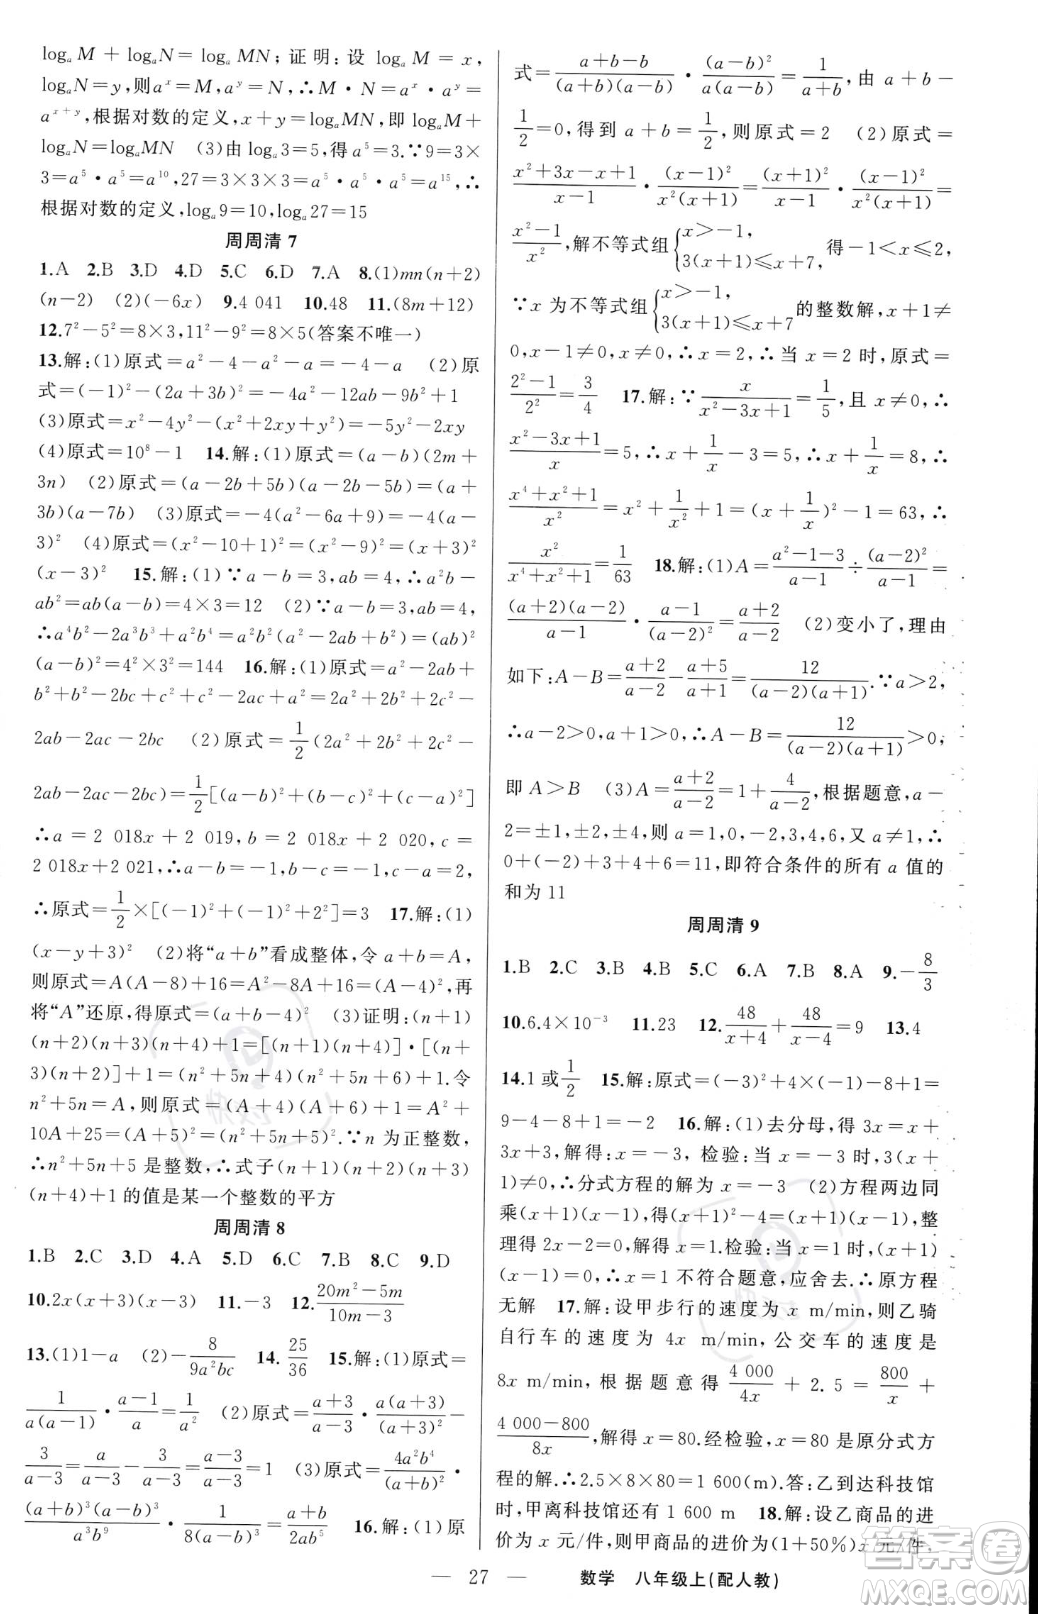 logₐM+logₐN=logₐMN;证明:设 logₐM=x,
logₐN=y,则aˣ=M,aʸ=N,∴M·N=aˣ·aʸ=
aˣ⁺ʸ,根据对数的定义,x+y=logₐMN,即 logₐM+
logₐN=logₐMN (3)由 logₐ3=5,得 a⁵=3.∵9=3×
3=a⁵·a⁵=a¹⁰,27=3×3×3=a⁵·a⁵·a⁵=a¹⁵,∴
根据对数的定义,logₐ9=10,logₐ27=15
周周清 7
1.A 2.B 3.D 4.D 5.C 6.D 7.A 8.(1)mn(n+2)
(n-2) (2)(-6x) 9.4 041 10.48 11.(8m+12)
12.7²-5²=8×3,11²-9²=8×5(答案不唯一)
13.解:(1)原式=a²-4-a²-a=-4-a (2)原
式=(-1)²-(2a+3b)²=-4a²-12ab-9b²+1
(3)原式=x²-4y²-(x²+2xy+y²)=-5y²-2xy
(4)原式=10⁸-1 14.解:(1)原式=(a-b)(2m+
3n) (2)原式=(a-2b+5b)(a-2b-5b)=(a+
3b)(a-7b) (3)原式=-4(a²-6a+9)=-4(a-
3)² (4)原式=(x²-10+1)²=(x²-9)²=(x+3)²
(x-3)² 15.解:(1)∵a-b=3,ab=4,∴a²b-
ab²=ab(a-b)=4×3=12 (2)∵a-b=3,ab=4,
∴a⁴b²-2a³b³+a²b⁴=a²b²(a²-2ab+b²)=(ab)²
(a-b)²=4²×3²=144 16.解:(1)原式=a²-2ab+
b²+b²-2bc+c²+c²-2ac+a²=2a²+2b²+2c²-
2ab-2ac-2bc (2)原式=1/2(2a²+2b²+2c²-
2ab-2ac-2bc)=1/2[(a-b)²+(b-c)²+(a-c)²]
∴a=2 018x+2 019,b=2 018x+2 020,c=
2 018x+2 021,∴a-b=-1,b-c=-1,c-a=2,
∴原式=1/2×[(-1)²+(-1)²+2²]=3 17.解:(1)
(x-y+3)² (2)将“a+b”看成整体,令 a+b=A,
则原式=A(A-8)+16=A²-8A+16=(A-4)²,再
将“A”还原,得原式=(a+b-4)² (3)证明:(n+1)
(n+2)(n+3)(n+4)+1=[(n+1)(n+4)]·[(n+
2)(n+3)]+1=(n²+5n+4)(n²+5n+6)+1.令
n²+5n=A,则原式=(A+4)(A+6)+1=A²+
10A+25=(A+5)²=(n²+5n+5)².∵n 为正整数,
∴n²+5n+5 是整数,∴式子(n+1)(n+2)(n+3)
(n+4)+1 的值是某一个整数的平方
周周清 8
1.B 2.C 3.D 4.A 5.D 6.D 7.B 8.C 9.D
10.2x(x+3)(x-3) 11.-3 12.(20m²-5m)/(10m-3)
13.(1)1-a (2)-8/(9a²bc) 14.25/36 15.解:(1)原式=
1/(a(a-1))·(a-1)/a=1/a² (2)原式=(a+3)/(a-3)·(a(a+3))/(a+3)²-
3/(a-3)=a/(a-3)-3/(a-3)=(a-3)/(a-3)=1 (3)原式=(4a²b⁴)/(a+b)²·
((a+b)³(a-b)³)/(a³b⁹)·1/(8(a-b)³)=(a+b)/(2ab⁵) 16.解:(1)原
式=(a+b-b)/((a+b)(a-b))·(a-b)²/(a(a-b))=1/(a+b),由 a+b-
1/2=0,得到 a+b=1/2,则原式=2 (2)原式=
(x²+3x-x+1)/(x-1)·(x-1)/(x²(x+1))=(x+1)²/(x-1)·(x-1)/(x²(x+1))=
(x²-1)/x²,解不等式组{x>-1, 3(x+1)≤x+7, 得-1<x≤2,
∵x 为不等式组{x>-1, 3(x+1)≤x+7 的整数解,∴x≠
0,x-1≠0,x+1≠0,∴x=2,∴当 x=2 时,原式=
(2²-1)/2²=3/4 17.解:∵x/(x²-3x+1)=1/5,且 x≠0,∴
(x²-3x+1)/x=5,∴x+1/x-3=5,∴x+1/x=8,∴
(x⁴+x²+1)/x²=x²+1/x²+1=(x+1/x)²-1=63,∴
x²/(x⁴+x²+1)=1/63 18.解:(1)A=(a²-1-3)/(a-1)÷(a-2)²/(a-1)=
((a+2)(a-2))/(a-1)·(a-1)/(a-2)²=(a+2)/(a-2) (2)变小了,理由
如下:A-B=(a+2)/(a-2)-(a+5)/(a+1)=12/((a-2)(a+1)).∵a>2,
∴a-2>0,a+1>0,∴A-B=12/((a-2)(a+1))>0,
即 A>B (3)A=(a+2)/(a-2)=1+4/(a-2),根据题意,a-
2=±1,±2,±4,则 a=1,0,-2,3,4,6,又 a≠1,∴
0+(-2)+3+4+6=11,即符合条件的所有 a 值的
和为 11
周周清 9
1.B 2.C 3.B 4.B 5.C 6.A 7.B 8.A 9.-8/3
10.6.4×10⁻³ 11.23 12.48/(x+4)+48/(x-4)=9 13.4
14.1 或 1/2 15.解:原式=(-3)²+4×(-1)-8+1=
9-4-8+1=-2 16.解:(1)去分母,得 3x=x+
3(x+1),解得 x=-3,检验:当 x=-3 时,3(x+
1)≠0,∴分式方程的解为 x=-3 (2)方程两边同
乘(x+1)(x-1),得(x+1)²-4=(x+1)(x-1),整
理得 2x-2=0,解得 x=1.检验:当 x=1 时,(x+1)
(x-1)=0,∴x=1 不符合题意,应舍去.∴原方程
无解 17.解:设甲步行的速度为 x m/min,则乙骑
自行车的速度为 4x m/min,公交车的速度是
8x m/min,根据题意得 4 000/4x+2.5=800/x+
(4 000-800)/8x,解得 x=80.经检验,x=80 是原分式方
程的解.∴2.5×8×80=1 600(m).答:乙到达科技馆
时,甲离科技馆还有 1 600 m 18.解:设乙商品的进
价为 x 元/件,则甲商品的进价为(1+50%)x元/件,
— 27 — 数学 八年级上(配人教)